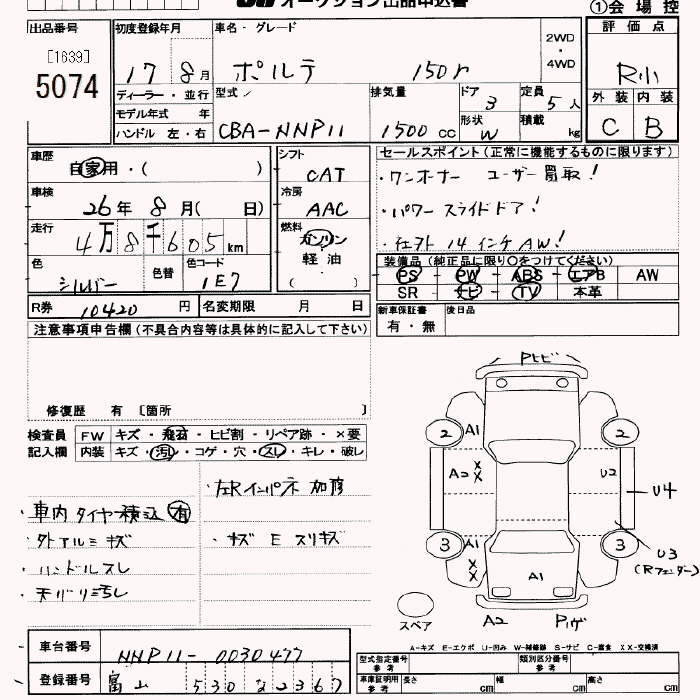 オークション出品申込書
①会場控
出品番号
[1639]
5074
初度登録年月
17 8月
車名・グレード
ポルテ 150r
2WD
・
4WD
評価点
R小
外装 内装
C B
ディーラー・並行
モデル年式 年
ハンドル 左・右
型式
CBA-NNP11
排気量
1500 CC
ドア
3
形状
W
定員
5人
積載
kg
車歴
自家用・( )
車検
26年 8月( 日)
走行
4万8千605km
色
シルバー
色替
色コード
1E7
シフト
CAT
冷房
AAC
燃料
ガソリン
・
軽油
( )
R券
10420円
名変期限 月 日
セールスポイント(正常に機能するものに限ります)
・ワンオーナー ユーザー買取!
・パワースライドドア!
・社外14インチAW!
装備品(純正品に限り○をつけてください)
PS PW ABS エアB AW
SR ナビ TV 本革
新車保証書
有・無
後日品
注意事項申告欄(不具合内容等は具体的に記入して下さい)
修復歴 有 [箇所 ]
検査員
記入欄
FW キズ・飛石・ヒビ割・リペア跡・×要
内装 キズ・汚レ・コゲ・穴・スレ・キレ・破レ
・車内タイヤ積込 有
・外アルミキズ
・ハンドルスレ
・天バリ汚レ
・左Rインパネ加修
・キズ E スリキズ
Pトビ
2 A1 2
A2 XX U2
U4
3 A1 XX 3
U3
(Rフェンダー)
A1
スペア
A2 Pハゲ
車台番号
NNP11-0030477
登録番号
富山 530 な 2367
A-キズ E-エクボ U-凹み W-補修跡 S-サビ C-腐食 XX-交換済
型式指定番号
参考
類別区分番号
参考
車庫証明用
参考
長さ cm 幅 cm 高さ cm